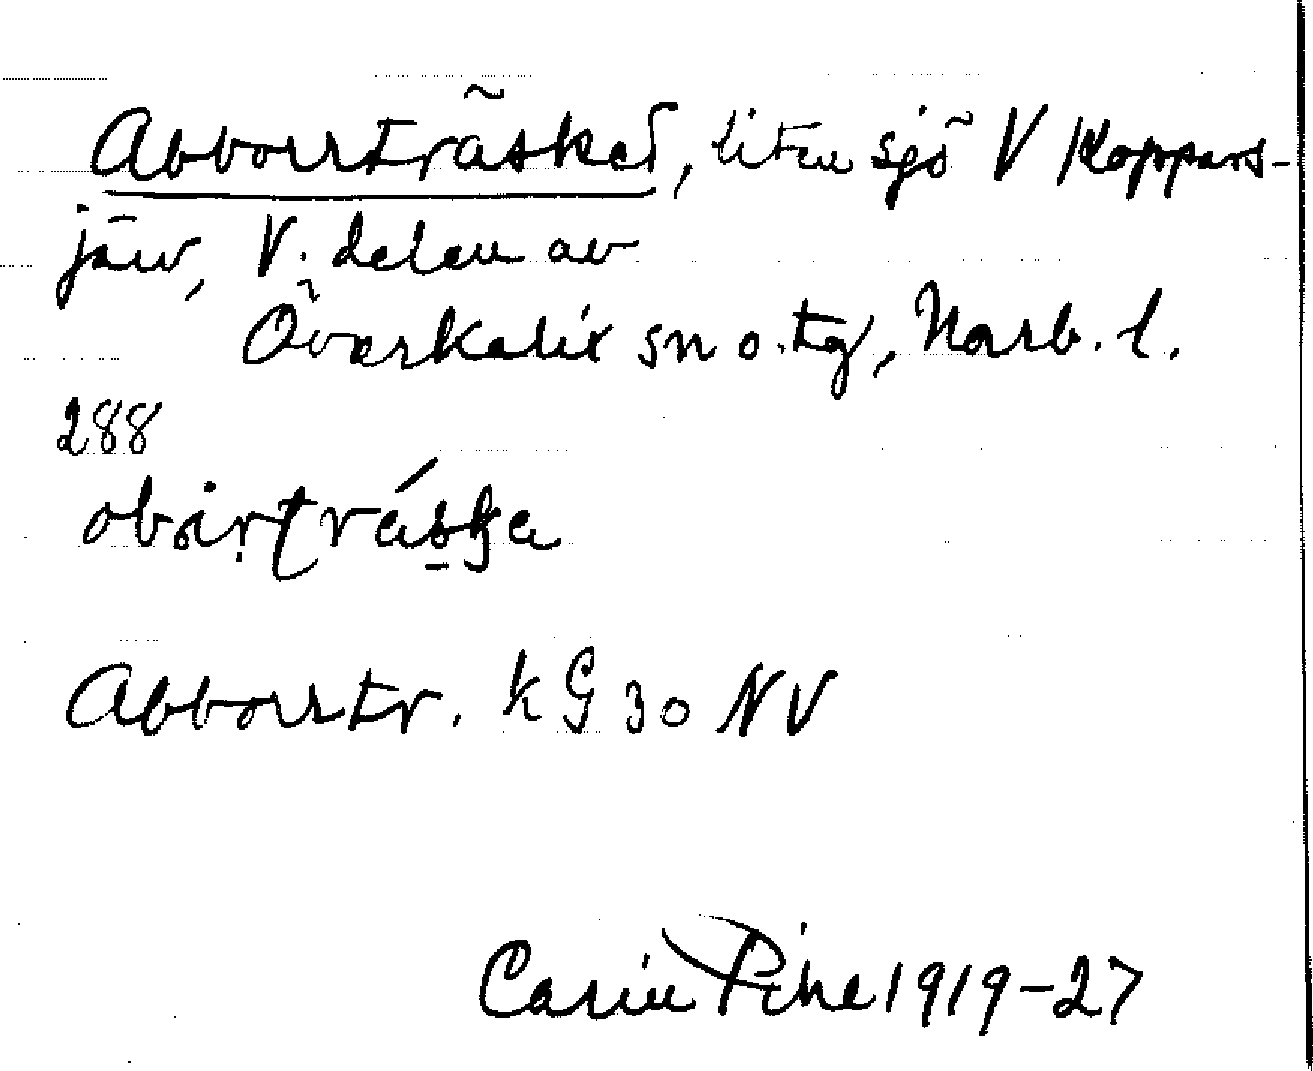 Abborrträsket, liten sjö V Koppars-
järv, V. delen av
Överkalix sn o. tg, Norrb. l.
288
Abborrtr. kG 30 NV
Carin Pihl 1919-27